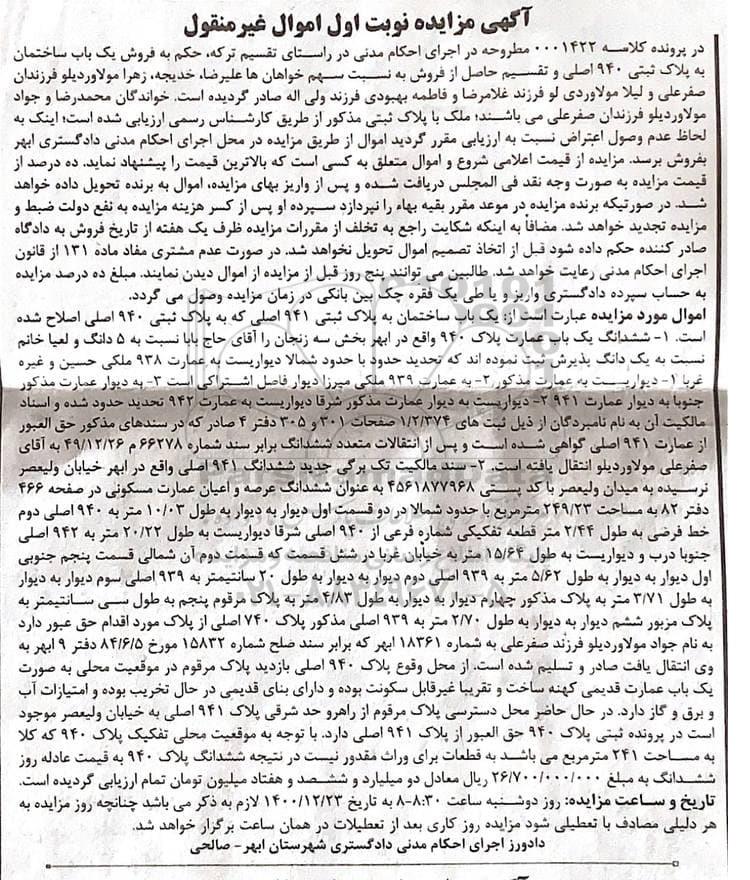 آگهی مزایده نوبت اول اموال غیرمنقول
در پرونده کلاسه ۰۰۰۱۴۲۲ مطروحه در اجرای احکام مدنی در راستای تقسیم ترکه، حکم به فروش یک باب ساختمان
به پلاک ثبتی ۹۴۰ اصلی و تقسیم حاصل از فروش به نسبت سهم خواهان ها علیرضا، خدیجه، زهرا مولاوردیلو فرزندان
صفرعلی و لیلا مولاوردی لو فرزند غلامرضا و فاطمه بهبودی فرزند ولی اله صادر گردیده است. خواندگان محمدرضا و جواد
مولاوردیلو فرزندان صفرعلی می باشند؛ ملک با پلاک ثبتی مذکور از طریق کارشناس رسمی ارزیابی شده است؛ اینک به
لحاظ عدم وصول اعتراض نسبت به ارزیابی مقرر گردید اموال از طریق مزایده در محل اجرای احکام مدنی دادگستری ابهر
بفروش برسد. مزایده از قیمت اعلامی شروع و اموال متعلق به کسی است که بالاترین قیمت را پیشنهاد نماید. ده درصد از
قیمت مزایده به صورت وجه نقد فی المجلس دریافت شده و پس از واریز بهای مزایده، اموال به برنده تحویل داده خواهد
شد. در صورتیکه برنده مزایده در موعد مقرر بقیه بهاء را نپردازد سپرده او پس از کسر هزینه مزایده به نفع دولت ضبط و
مزایده تجدید خواهد شد. مضافاً به اینکه شکایت راجع به تخلف از مقررات مزایده ظرف یک هفته از تاریخ فروش به دادگاه
صادر کننده حکم داده شود قبل از اتخاذ تصمیم اموال تحویل نخواهد شد. در صورت عدم مشتری مفاد ماده ۱۳۱ از قانون
اجرای احکام مدنی رعایت خواهد شد. طالبین می توانند پنج روز قبل از مزایده از اموال دیدن نمایند. مبلغ ده درصد مزایده
به حساب سپرده دادگستری واریز و یا طی یک فقره چک بین بانکی در زمان مزایده وصول می گردد.
اموال مورد مزایده عبارت است از: یک باب ساختمان به پلاک ثبتی ۹۴۱ اصلی که به پلاک ثبتی ۹۴۰ اصلی اصلاح شده
است. ۱- ششدانگ یک باب عمارت پلاک ۹۴۰ واقع در ابهر بخش سه زنجان را آقای حاج بابا نسبت به ۵ دانگ و لعیا خانم
نسبت به یک دانگ پذیرش ثبت نموده اند که تحدید حدود با حدود شمالا دیواریست به عمارت ۹۳۸ ملکی حسین و غیره
غربا ۱- دیواریست به عمارت مذکور ۲- به عمارت ۹۳۹ ملکی میرزا دیوار فاصل اشتراکی است ۳- به دیوار عمارت مذکور
جنوبا به دیوار عمارت ۹۴۱ ۲- دیواریست به دیوار عمارت مذکور شرقا دیواریست به عمارت ۹۴۲ تحدید حدود شده و اسناد
مالکیت آن به نام نامبردگان از ذیل ثبت های ۱/۲/۳۷۴ صفحات ۳۰۱ و ۳۰۵ دفتر ۴ صادر که در سندهای مذکور حق العبور
از عمارت ۹۴۱ اصلی گواهی شده است و پس از انتقالات متعدد ششدانگ برابر سند شماره ۶۶۲۷۸ م ۴۹/۱۲/۲۶ به آقای
صفرعلی مولاوردیلو انتقال یافته است. ۲- سند مالکیت تک برگی جدید ششدانگ ۹۴۱ اصلی واقع در ابهر خیابان ولیعصر
نرسیده به میدان ولیعصر با کد پستی ۴۵۶۱۸۷۷۹۶۸ به عنوان ششدانگ عرصه و اعیان عمارت مسکونی در صفحه ۴۶۶
دفتر ۸۲ به مساحت ۲۴۹/۲۳ مترمربع با حدود شمالا در دو قسمت اول دیوار به دیوار به طول ۱۰/۰۳ متر به ۹۴۰ اصلی دوم
خط فرضی به طول ۲/۴۴ متر قطعه تفکیکی شماره فرعی از ۹۴۰ اصلی شرقا دیواریست به طول ۲۰/۲۲ متر به ۹۴۲ اصلی
جنوبا درب و دیواریست به طول ۱۵/۶۴ متر به خیابان غربا در شش قسمت که قسمت دوم آن شمالی قسمت پنجم جنوبی
اول دیوار به دیوار به طول ۵/۶۲ متر به ۹۳۹ اصلی دوم دیوار به دیوار به طول ۲۰ سانتیمتر به ۹۳۹ اصلی سوم دیوار به دیوار
به طول ۳/۷۱ متر به پلاک مذکور چهارم دیوار به دیوار به طول ۴/۸۳ متر به پلاک مرقوم پنجم به طول سی سانتیمتر به
پلاک مزبور ششم دیوار به دیوار به طول ۲/۷۰ متر به ۹۳۹ اصلی مذکور پلاک ۷۴۰ اصلی از پلاک مورد اقدام حق عبور دارد
به نام جواد مولاوردیلو فرزند صفرعلی به شماره ۱۸۳۶۱ ابهر که برابر سند صلح شماره ۱۵۸۳۲ مورخ ۸۴/۶/۵ دفتر ۹ ابهر به
وی انتقال یافت صادر و تسلیم شده است. از محل وقوع پلاک ۹۴۰ اصلی بازدید پلاک مرقوم در موقعیت محلی به صورت
یک باب عمارت قدیمی کهنه ساخت و تقریبا غیرقابل سکونت بوده و دارای بنای قدیمی در حال تخریب بوده و امتیازات آب
و برق و گاز دارد. در حال حاضر محل دسترسی پلاک مرقوم از راهرو حد شرقی پلاک ۹۴۱ اصلی به خیابان ولیعصر موجود
است در پرونده ثبتی پلاک ۹۴۰ حق العبور از پلاک ۹۴۱ اصلی دارد. با توجه به موقعیت محلی تفکیک پلاک ۹۴۰ که کلا
به مساحت ۲۴۱ مترمربع می باشد به قطعات برای وراث مقدور نیست در نتیجه ششدانگ پلاک ۹۴۰ به قیمت عادله روز
ششدانگ به مبلغ ۲۶/۷۰۰/۰۰۰/۰۰۰ ریال معادل دو میلیارد و ششصد و هفتاد میلیون تومان تمام ارزیابی گردیده است.
تاریخ و ساعت مزایده: روز دوشنبه ساعت ۸:۳۰-۸ به تاریخ ۱۴۰۰/۱۲/۲۳ لازم به ذکر می باشد چنانچه روز مزایده به
هر دلیلی مصادف با تعطیلی شود مزایده روز کاری بعد از تعطیلات در همان ساعت برگزار خواهد شد.
دادورز اجرای احکام مدنی دادگستری شهرستان ابهر- صالحی